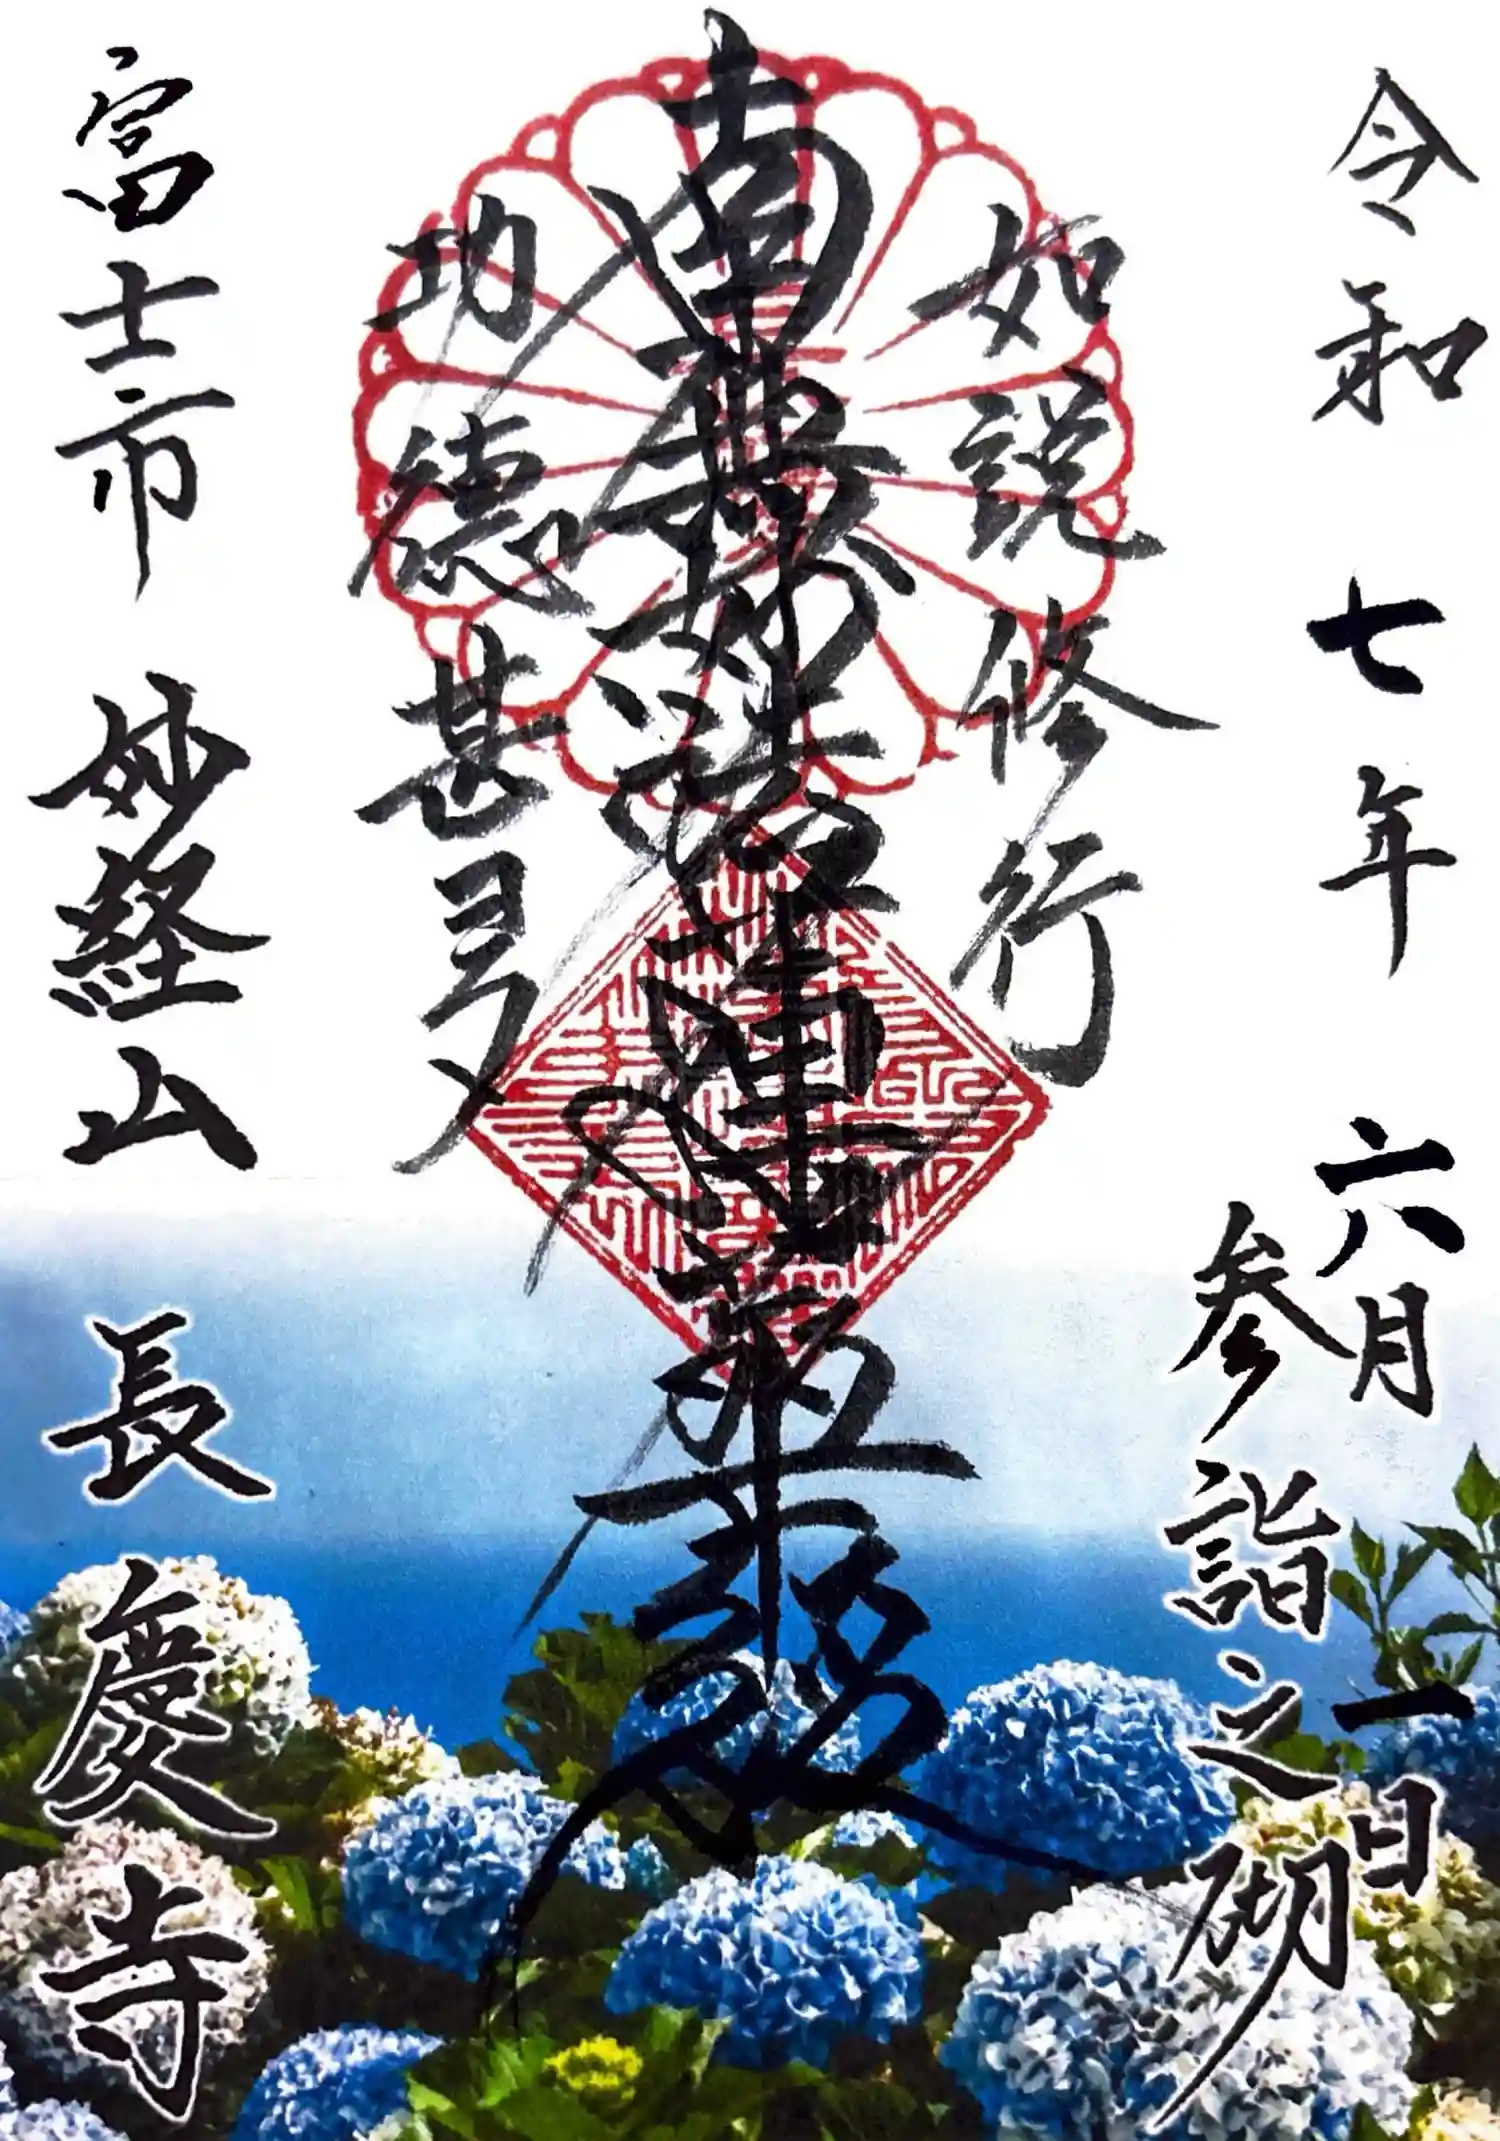 令和七年 六月一日
参詣之砌
如説修行
南無妙法蓮華経
功徳甚多
富士市 妙経山 長慶寺